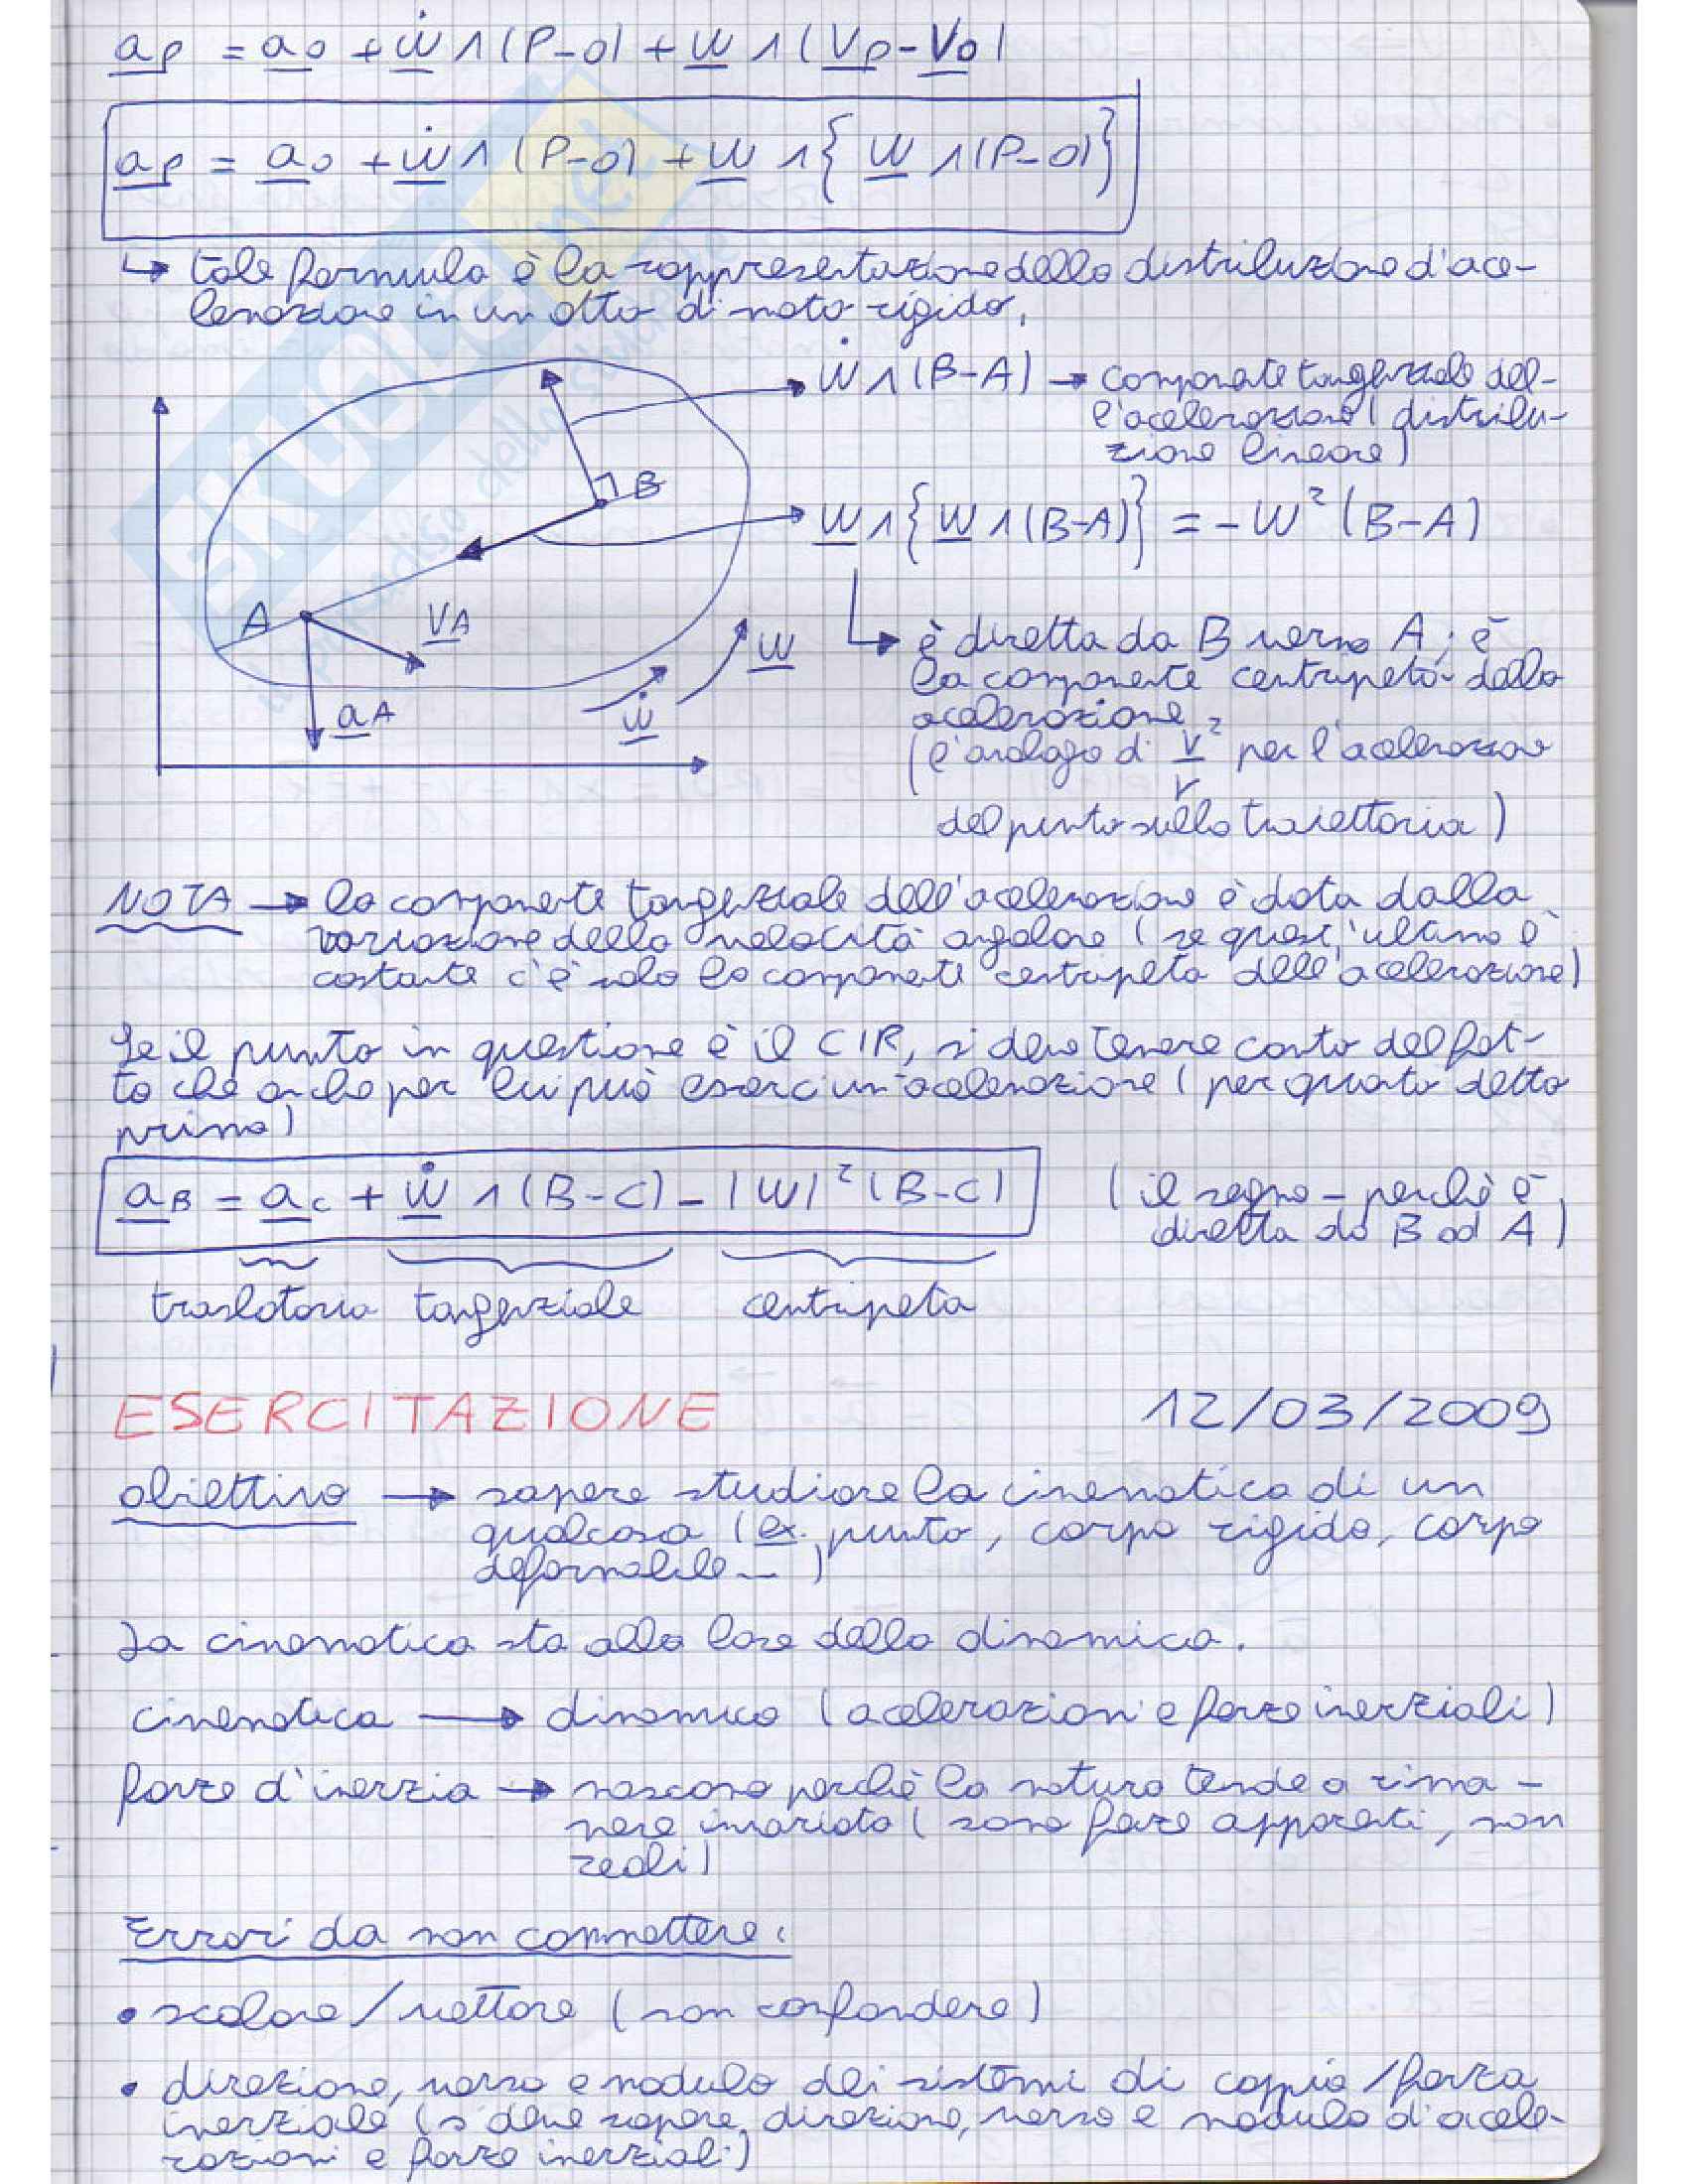 a_P = a_O + ẇ ∧ (P-O) + w ∧ (V_P - V_O)
a_P = a_O + ẇ ∧ (P-O) + w ∧ { w ∧ (P-O) }
↳ tale formula è la rappresentazione della distribuzione d'ace-
lerazione in un atto di moto rigido.
ẇ ∧ (B-A) → componente tangenziale del-
l'acelerazione (distribu-
zione lineare)
B
w ∧ { w ∧ (B-A) } = - w² (B-A)
A
V_A
a_A
ẇ
w
↳ è diretta da B verso A; è
la componente centripeta della
acelerazione
(l'analogo di v²/r per l'acelerazione
del punto sulla traiettoria)
NOTA → la componente tangenziale dell'acelerazione è data dalla
variazione della velocità angolare (se quest'ultima è
costante c'è solo la componente centripeta dell'acelerazione)
Se il punto in questione è il CIR, si deve tenere conto del fat-
to che anche per lui può esserci un'acelerazione (per quanto detto
prima)
a_B = a_C + ẇ ∧ (B-C) - |w|² (B-C)
(il segno - perchè è
diretta da B ad A)
traslatoria tangenziale centripeta
ESERCITAZIONE 12/03/2009
obiettivo → sapere studiare la cinematica di un
qualcosa (ex. punto, corpo rigido, corpo
deformabile...)
La cinematica sta alla base della dinamica.
cinematica → dinamica (acelerazioni e forze inerziali)
forze d'inerzia → nascono perchè la natura tende a rima-
nere invariata (sono forze apparenti, non
reali)
Errori da non commettere:
• scalare/vettore (non confondere)
• direzione, verso e modulo dei sistemi di coppia/forza
inerziale (si deve sapere direzione, verso e modulo d'acele-
razioni e forze inerziali)
SKUOLA.net